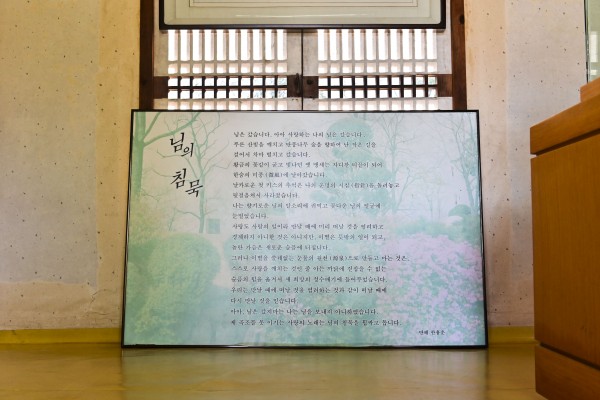 님의
침묵
님은 갔습니다. 아아 사랑하는 나의 님은 갔습니다.
푸른 산빛을 깨치고 단풍나무 숲을 향하여 난 작은 길을
걸어서 차마 떨치고 갔습니다.
황금의 꽃같이 굳고 빛나던 옛 맹세는 차디찬 티끌이 되어
한숨의 미풍(微風)에 날아갔습니다.
날카로운 첫 키스의 추억은 나의 운명의 지침(指針)을 돌려놓고
뒷걸음쳐서 사라졌습니다.
나는 향기로운 님의 말소리에 귀먹고 꽃다운 님의 얼굴에
눈멀었습니다.
사랑도 사람의 일이라 만날 때에 미리 떠날 것을 염려하고
경계하지 아니한 것은 아니지만, 이별은 뜻밖의 일이 되고,
놀란 가슴은 새로운 슬픔에 터집니다.
그러나 이별을 쓸데없는 눈물의 원천(源泉)으로 만들고 마는 것은,
스스로 사랑을 깨치는 것인 줄 아는 까닭에 걷잡을 수 없는
슬픔의 힘을 옮겨서 새 희망의 정수박이에 들어부었습니다.
우리는 만날 때에 떠날 것을 염려하는 것과 같이 떠날 때에
다시 만날 것을 믿습니다.
아아, 님은 갔지마는 나는 님을 보내지 아니하였습니다.
제 곡조를 못 이기는 사랑의 노래는 님의 침묵을 휩싸고 돕니다.
-만해 한용운-